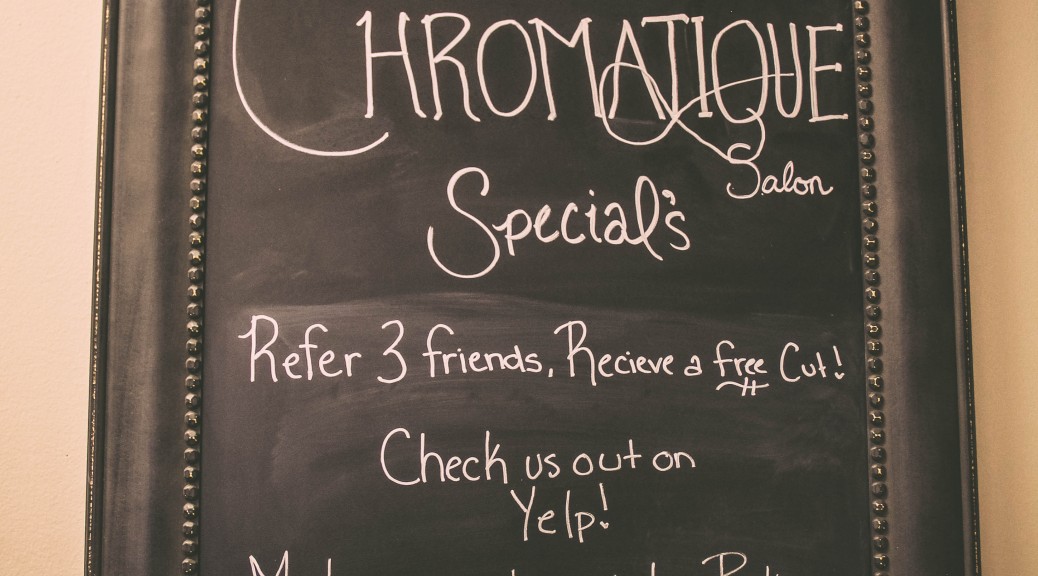 CHROMATIQUE
Salon
Special's
Refer 3 friends, Recieve a free Cut!
Check us out on
Yelp!